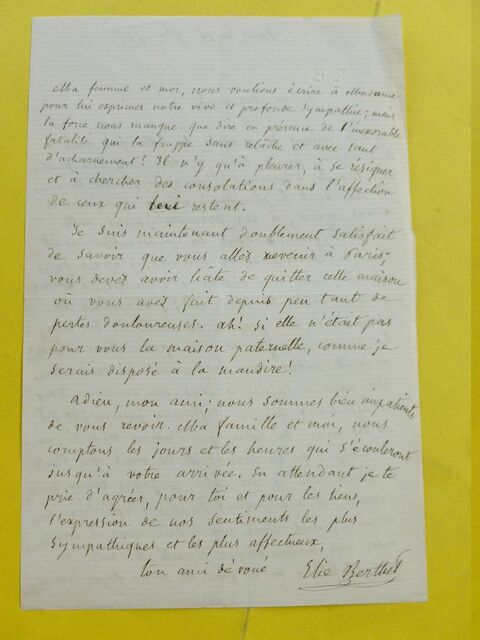 Ma femme et moi, nous voulions écrire à Madame
pour lui exprimer notre vive et profonde sympathie; mais
la force nous manque. que dire en présence de l'inexorable
fatalité qui la frappe sans relâche et avec tant
d'acharnement! Il n'y qu'à pleurer, à se résigner
et à chercher des consolations dans l'affection
de ceux qui lui restent.
Je suis maintenant doublement satisfait
de savoir que vous allez revenir à Paris;
vous devez avoir hâte de quitter cette maison
où vous avez fait depuis peu tant de
pertes douloureuses. ah! si elle n'était pas
pour vous la maison paternelle, comme je
serais disposé à la maudire!
adieu, mon ami; nous sommes bien impatients
de vous revoir. Ma famille et moi, nous
comptons les jours et les heures qui s'écouleront
jusqu'à votre arrivée. En attendant je te
prie d'agréer, pour toi et pour les tiens,
l'expression de nos sentiments les plus
sympathiques et les plus affectueux,
ton ami dévoué Elie Berthet